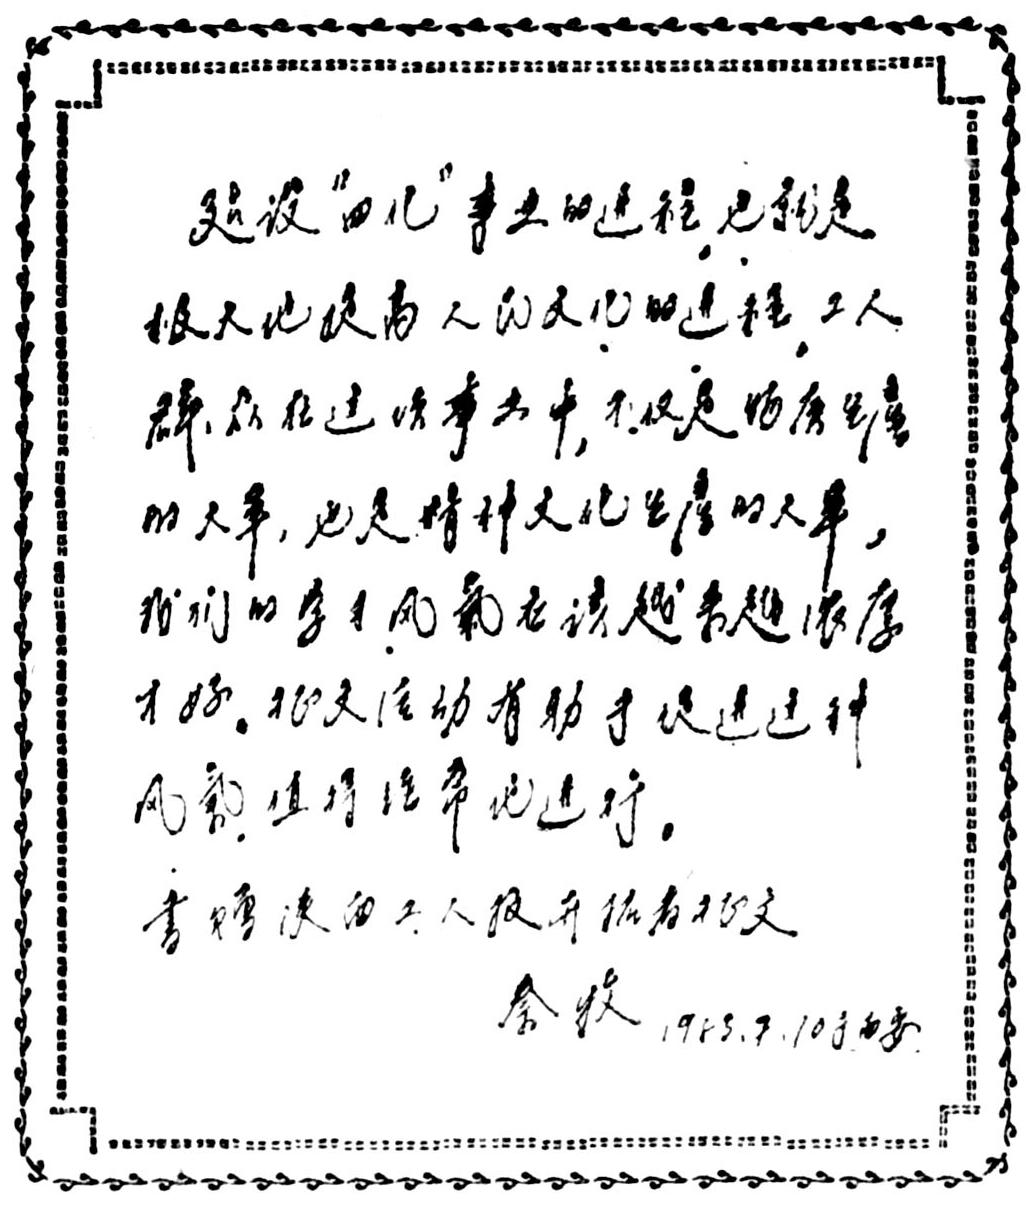 建设"四化"事业的进程，也就是
极大地提高人民文化的进程，工人
群众在这项事业中，不仅是物质生产
的大军，也是精神文化生产的大军，
我们的学习风气应该越来越浓厚
才好。征文活动有助于促进这种
风气，值得经常地进行。
书赠陕西工人报开拓者征文
秦牧 1985.7.10于西安